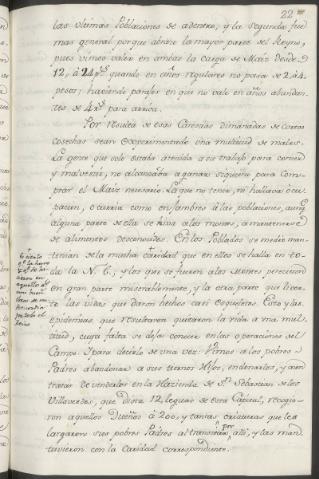 22
las ultimas Poblaciones se adentro, y la segunda fue
mas general porque abrazo la mayor parte del Reyno,
pues vimos valer en ambas la carga de Maiz desde
12, á 24 p.s quando en años regulares no pasa de 2 á 4
pesos; haciendo pender en que no vale en años abundan-
tes de 4 r.s para arriva.
Por resulta de esas Carestías dimanadas de cortas
cosechas se an experimentado una multitud de males.
La gente que solo estaba atenida a su trabajo para comer
y malvestir, no alcanzaba a ganar siquiera para com-
prar el Maiz necesario. La que no tenia, ni hallava ocu-
pacion, ocurria como enjambres á las poblaciones, aunq
alguna parte de ella se hiva a los montes, a mantenerse
de alimentos desconocidos. En los Poblados se medio man-
tenian de la mucha caridad que en ellos se halla en to-
da la N. E., y los que se fueron a los Montes perecieron
en gran parte miserablemente, y la otra parte que liver-
to las vidas que daron hechos casi esqueletos. Esto y las
epidemias que resultaron quitaron la vida a una mul-
titud, cuya falta se deja conocer en las operaciones del
Campo. Para decirlo de una vez: Vimos a los pobres
Padres abandonar a sus tiernos Hijos, venderlos, y aun
tratar de venderlos en la Hazienda de S.n Sebastian de los
Villaverdes, que dista 12 leguas de esta Capital, recogie-
ron aquellos Dueños á 200, y tantas criaturas que les
largaron sus pobres Padres al transitar por allí, y las man-
tuvieron con la Caridad correspondiente.